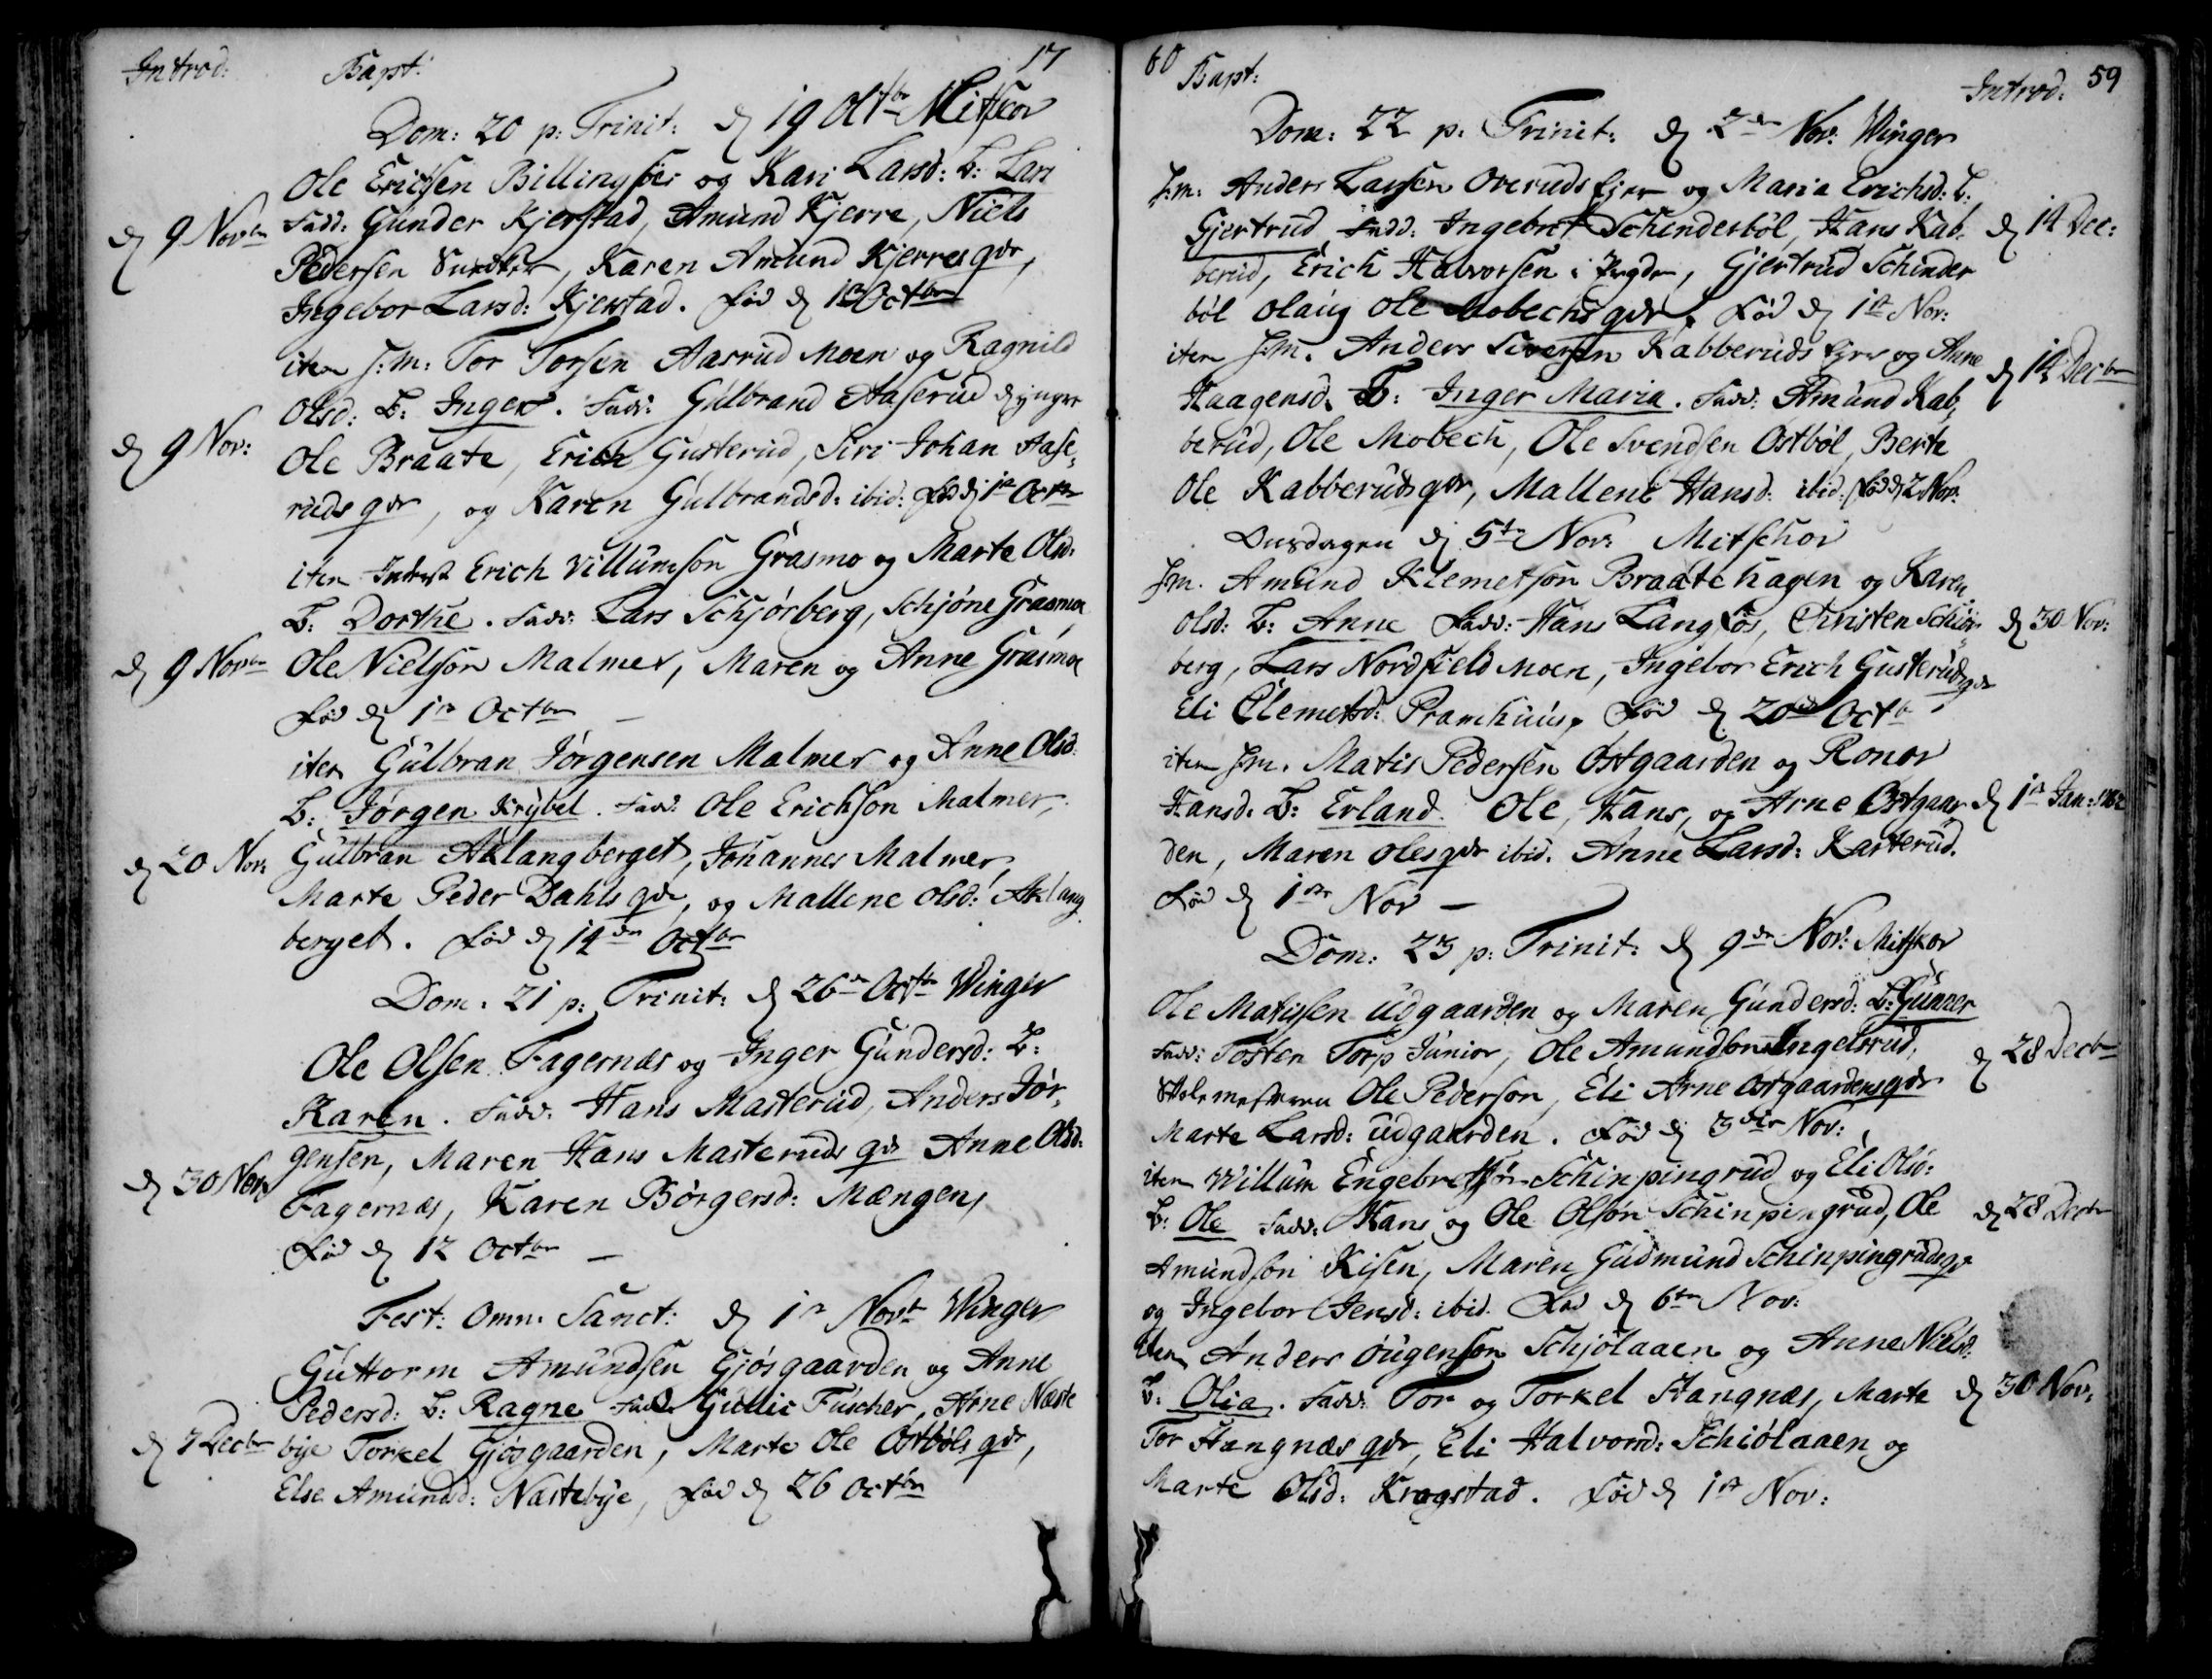 Introd: Bapt: 17
Dom: 20 p: Trinit: d 19 Octbr Mitskov
Ole Erichsen Billingsøe og Kari Larsd: B: Lars
d 9 Novbr Fadd: Gunder Kjerstad, Amund Kjerre, Niels
Pedersen, Karen Amund Kjerres qvr,
Ingebor Larsd: Kjerstad. Fød d Octbr
item s:m: Tor Torsen Aasrud moen og Ragnild
Olsd: B: Inger. Fadd: Gulbrand Aaserud d yngre
d 9 Nov: Ole Braate, Erich Gusterud, Siri Johan Aase,
ruds qvr, og Karen Gulbrandsd: ibid: Fød d 1ste Octbr
item Inderst Erich Villumson Grasmo og Marte Olsd:
B: Dorthe. Fadd: Lars Schjørberg, Schjøne Grasmoe,
d 9 Novbr Ole Nielson Malmer, Maren og Anne Grasmoe
Fød d 1ste Octbr –
item Gulbran Jørgensen Malmer og Anne Olsd:
B: Jørgen Krybel. Fadd: Ole Erichson Malmer,
d 20 Nov: Gulbran Aklangberget, Johannes Malmer,
Marte Peder Dahls qvr, og Mallene Olsd: Aklang
berget. Fød d 14de Octbr
Dom: 21 p: Trinit: d 26de Octbr Winger
Ole Olsen Fagernæs og Inger Gundersd: B:
Karen. Fadd: Hans Masterud, Anders Jør,
gensen, Maren Hans Masteruds qvr Anne Olsd:
d 30 Nov: Fagernæs, Karen Børgersd: Mængen,
Fød d 12 Octbr –
Fest: Omn: Sanct: d 1ste Novbr Winger
Guttorm Amundsen Gjøsgaarden og Anne
Pedersd: B: Ragne Fadd: Gullic Fuscher, Arne Næste
d 7 Decbr bye Torkel Gjøsgaarden, Marte Ole Østbøls qvr,
Else Amundsd: Næstebye, Fød d 26 Octbr
60 Bapt: Introd: 59
Dom: 22 p: Trinit: d 2den Nov: Winger
s:m: Anders Larsen Overuds Ejer og Maria Erichsd: B:
Gjertrud Fadd: Ingebret Schinderbøl, Hans Kab, d 14 Dec:
berud, Erich Halvorsen i, Gjertrud Schinder
bøl Olaug Ole Mobechs qvr, Fød d 1ste Nov:
item s:m. Anders Siversen Kabberuds Ejer og Anne
Haagensd: B: Inger Maria. Fadd: Amund Kab, d 14 Decbr
berud, Ole Mobech, Ole Svendsen Østbøl, Berte
Ole Kabberuds qvr, Mallene Hansd: ibid. Fød d 2 Nov:
Onsdagen d 5te Nov: Mitschov
s:m. Amund Klemetson Braatehagen og Karen
Olsd: B: Anne Fadd: Hans Langfos, Christen Schiør d 30 Nov:
berg, Lars Nordfield moen, Ingebor Erich Gusterudsqvr
Eli Clemetsd: Pramhuus, Fød d 20de Octbr
item s:m. Matis Pedersen Østgaarden og Ronov
Hansd: B: Erland. Ole, Hans, og Arne Østgaar d 1ste Jan:
den, Maren Oles qvr ibid. Anne Larsd: Karterud.
Fød d 1ste Nov –
Dom: 23 p: Trinit: d 9de Nov: Mitskov
Ole Matissen Udgaarden og Maren Gundersd: B: Gunner
Fadd: Tosten Torp Junior, Ole Amundsen Ingelsrud, d 28 Decbr
Skolemesteren Ole Pederson, Eli Arne Østgaardens qvr
Marte Larsd: Udgaarden. Fød d 3die Nov:
item Willum Engebretsøn Schinpingrud og Eli Olsd:
B: Ole Fadd: Hans og Ole Olson Schinpingrud, Ole d 28 Decbr
Amundson Kisen, Maren Gudmund Schinpingruds qvr
og Ingebor Jensd: ibid. Fød d 6te Nov:
item Anders Ougenson Schjølaaen og Anne Nielsd:
B: Olia. Fadd: Tor og Torkel Stangnæs, Marte d 30 Nov:
Tor Stangnæs qvr, Eli Halvorsd: Schiølaaen og
Marte Olsd: Kragstad. Fød d 1ste Nov: